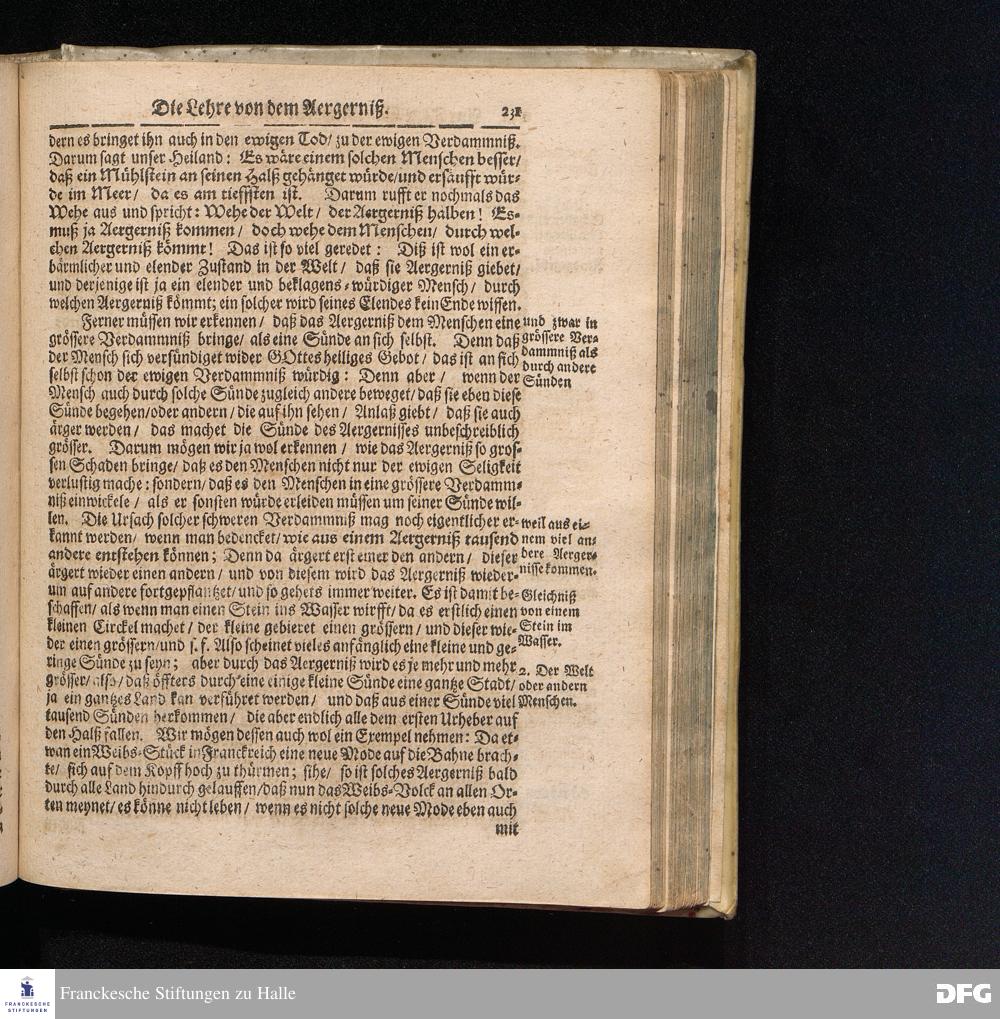 Die Lehre von dem Aergerniß.
231
dern es bringet ihn auch in den ewigen Tod/ zu der ewigen Verdammniß.
Darum sagt unser Heiland: Es wäre einem solchen Menschen besser/
daß ein Mühlstein an seinen Halß gehänget würde/und ersäufft wür-
de im Meer/ da es am tieffsten ist. Darum rufft er nochmals das
Wehe aus und spricht: Wehe der Welt/ der Aergerniß halben! Es-
muß ja Aergerniß kommen/ doch wehe dem Menschen/ durch wel-
chen Aergerniß kömmt! Das ist so viel geredet: Diß ist wol ein er-
bärmlicher und elender Zustand in der Welt/ daß sie Aergerniß giebet/
und derjenige ist ja ein elender und beklagens-würdiger Mensch/ durch
welchen Aergerniß kömmt; ein solcher wird seines Elendes kein Ende wissen.
Ferner müssen wir erkennen/ daß das Aergerniß dem Menschen eine
grössere Verdammniß bringe/ als eine Sünde an sich selbst. Denn daß
der Mensch sich versündiget wider GOttes heiliges Gebot/ das ist an sich
selbst schon der ewigen Verdammniß würdig: Denn aber/ wenn der
Mensch auch durch solche Sünde zugleich andere beweget/ daß sie eben diese
Sünde begehen/oder andern/ die auf ihn sehen/ Anlaß giebt/ daß sie auch
ärger werden/ das machet die Sünde des Aergernisses unbeschreiblich
grösser. Darum mögen wir ja wol erkennen/ wie das Aergerniß so gros-
sen Schaden bringe/ daß es den Menschen nicht nur der ewigen Seligkeit
verlustig mache: sondern/ daß es den Menschen in eine grössere Verdamm-
niß einwickele/ als er sonsten würde erleiden müssen um seiner Sünde wil-
len. Die Ursach solcher schweren Verdammniß mag noch eigentlicher er-
kannt werden/ wenn man bedencket/ wie aus einem Aergerniß tausend
andere entstehen können; Denn da ärgert erst einer den andern/ dieser
ärgert wieder einen andern/ und von diesem wird das Aergerniß wieder-
um auf andere fortgepflantzet/ und so gehets immer weiter. Es ist damit be-
schaffen/ als wenn man einen Stein ins Wasser wirfft/ da es erstlich einen
kleinen Circkel machet/ der kleine gebieret einen grössern/ und dieser wie-
der einen grössern/und s. f. Also scheinet vieles anfänglich eine kleine und ge-
ringe Sünde zu seyn; aber durch das Aergerniß wird es je mehr und mehr
grösser/ also/ daß öffters durch eine einige kleine Sünde eine gantze Stadt/
ja ein gantzes Land kan verführet werden/ und daß aus einer Sünde viel
tausend Sünden herkommen/ die aber endlich alle dem ersten Urheber auf
den Halß fallen. Wir mögen dessen auch wol ein Exempel nehmen: Da et-
wan ein Weibs-Stück in Franckreich eine neue Mode auf die Bahne brach-
te/ sich auf dem Kopff hoch zu thürmen; sihe/ so ist solches Aergerniß bald
durch alle Land hindurch gelauffen/ daß nun das Weibs-Volck an allen Or-
ten meynet/ es könne nicht leben/ wenn es nicht solche neue Mode eben auch
mit
und zwar in
grössere Ver-
dammniß als
durch andere
Sünden
weil aus ei-
nem viel an-
dere Aerger-
nisse kommen.
Gleichniß
von einem
Stein im
Wasser.
2. Der Welt
oder andern
Menschen.
FRANCKESCHE
STIFTUNGEN
Franckesche Stiftungen zu Halle
DFG